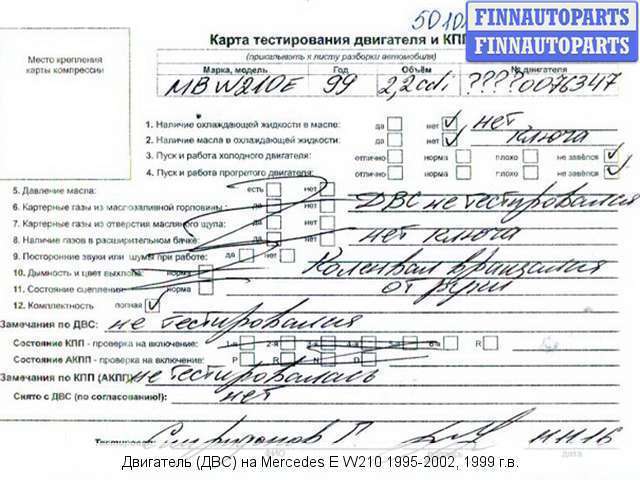 5010
FINNAUTOPARTS
FINNAUTOPARTS
Карта тестирования двигателя и КПП
(прикалывать к листу разборки автомобиля)
Место крепления
карты компрессии
Марка, модель Год Объём № двигателя
MB W210E 99 2,2cdi ????0076347
1. Наличие охлаждающей жидкости в масле: да нет нет
2. Наличие масла в охлаждающей жидкости: да нет ключа
3. Пуск и работа холодного двигателя: отлично норма плохо не завёлся
4. Пуск и работа прогретого двигателя: отлично норма плохо не завёлся
5. Давление масла: есть нет
6. Картерные газы из маслозаливной горловины: да нет ДВС не тестировался
7. Картерные газы из отверстия масляного щупа: да нет
8. Наличие газов в расширительном бачке: да нет нет ключа
9. Посторонние звуки или шумы при работе: да нет
10. Дымность и цвет выхлопа: норма Коленвал вращался
11. Состояние сцепления: норма от руки
12. Комплектность полная
Замечания по ДВС: не тестировался
Состояние КПП - проверка на включение: 1-я 2-я 3-я 4-я 5-я 6-я R
Состояние АКПП - проверка на включение: P R N D
Замечания по КПП (АКПП): не тестировалась
Снято с ДВС (по согласованию!): нет
11.11.16
ФИО подпись дата
Двигатель (ДВС) на Mercedes E W210 1995-2002, 1999 г.в.